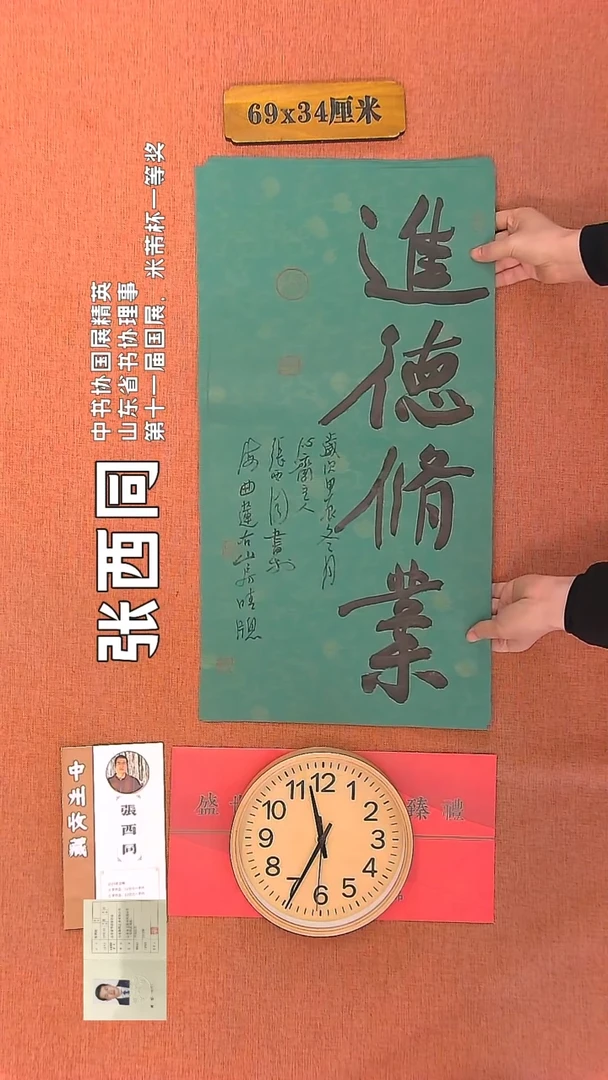 69x34厘米
進德修業
歲次甲辰冬月
心齋主人
張西同書於
海曲蓮石山房晴牕
张西同
中书协国展精英
山东省书协理事
第十一届国展，米芾杯一等奖
張西同
盛世
臻禮
12
1
2
3
4
5
6
7
8
9
10
11